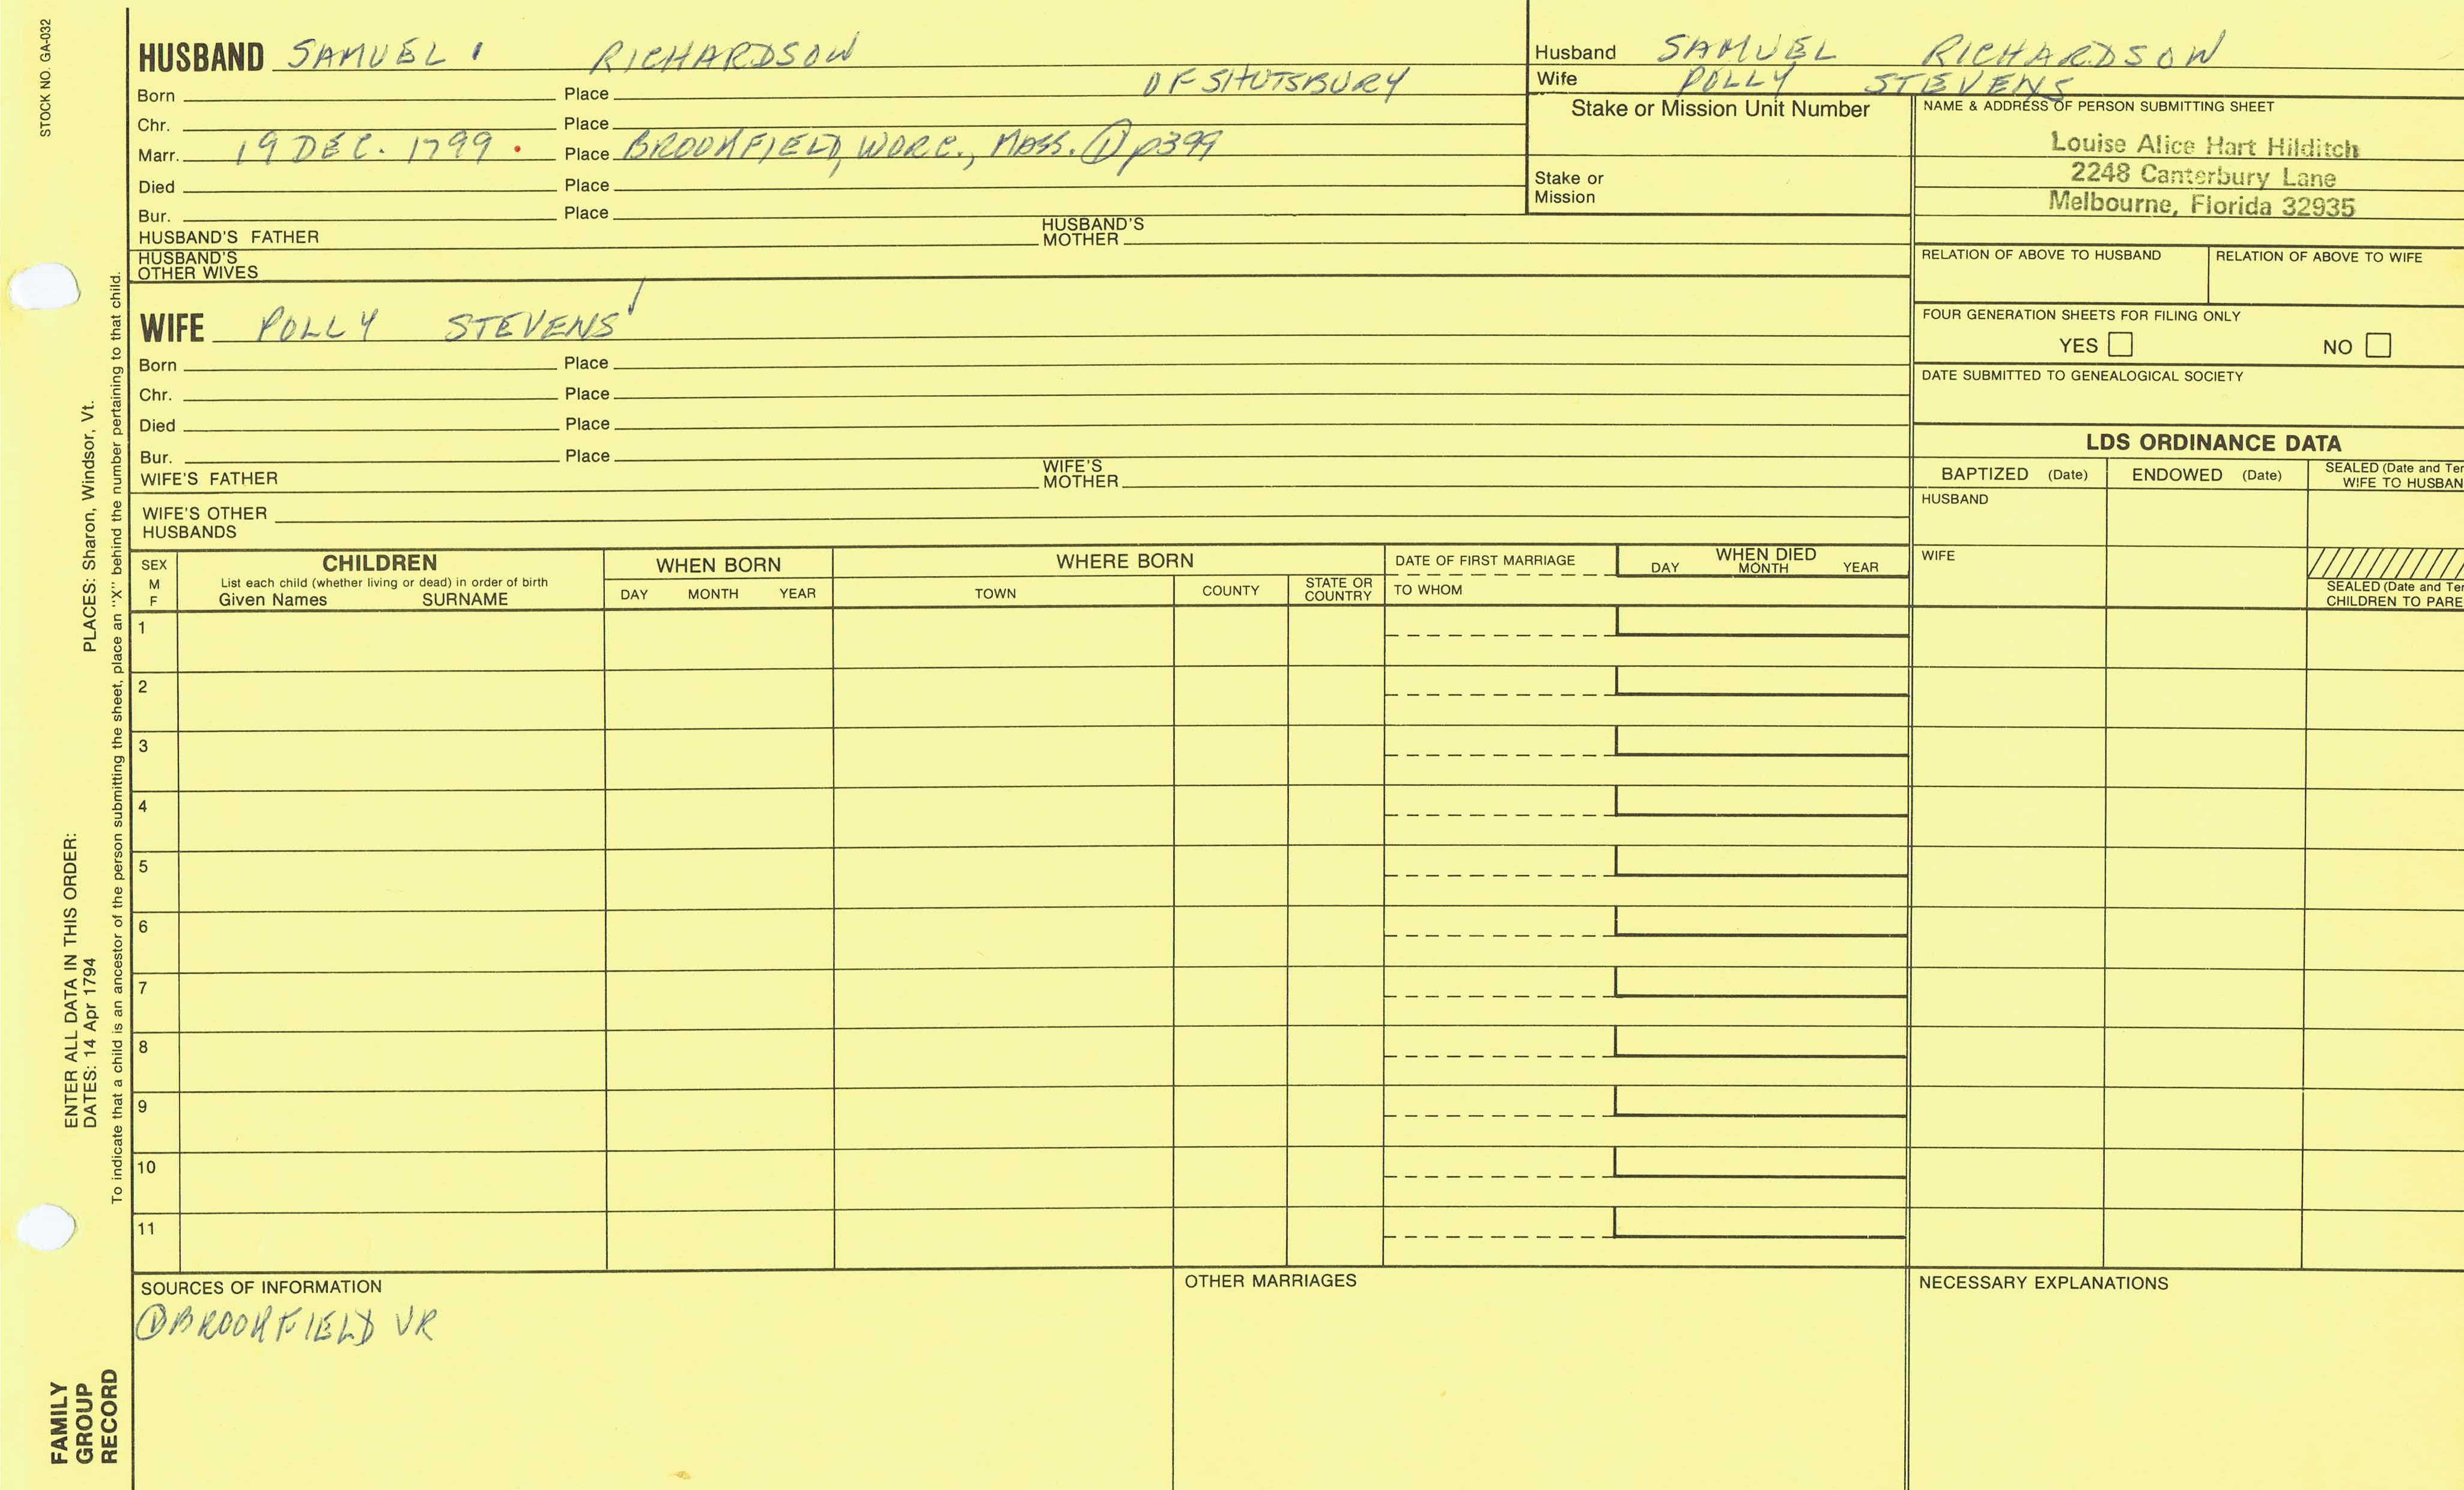 STOCK NO. GA-032
HUSBAND SAMUEL RICHARDSON
OF SHUTSBURY
Born Place
Chr. Place
Marr. 19 DEC. 1799 . Place BROOKFIELD, WORC., MASS. ① p399
Died Place
Bur. Place
HUSBAND'S FATHER HUSBAND'S MOTHER
HUSBAND'S OTHER WIVES
WIFE POLLY STEVENS
Born Place
Chr. Place
Died Place
Bur. Place
WIFE'S FATHER WIFE'S MOTHER
WIFE'S OTHER HUSBANDS
Husband SAMUEL RICHARDSON
Wife POLLY STEVENS
Stake or Mission Unit Number
Stake or
Mission
NAME & ADDRESS OF PERSON SUBMITTING SHEET
Louise Alice Hart Hilditch
2248 Canterbury Lane
Melbourne, Florida 32935
RELATION OF ABOVE TO HUSBAND RELATION OF ABOVE TO WIFE
FOUR GENERATION SHEETS FOR FILING ONLY
YES NO
DATE SUBMITTED TO GENEALOGICAL SOCIETY
LDS ORDINANCE DATA
BAPTIZED (Date) ENDOWED (Date) SEALED (Date and Tem
WIFE TO HUSBAN
HUSBAND
WIFE
SEALED (Date and Tem
CHILDREN TO PARE
SEX
M
F
CHILDREN
List each child (whether living or dead) in order of birth
Given Names SURNAME
WHEN BORN
DAY MONTH YEAR
WHERE BORN
TOWN COUNTY STATE OR COUNTRY
DATE OF FIRST MARRIAGE
TO WHOM
WHEN DIED
DAY MONTH YEAR
1
2
3
4
5
6
7
8
9
10
11
SOURCES OF INFORMATION
① BROOKFIELD VR
OTHER MARRIAGES
NECESSARY EXPLANATIONS
ENTER ALL DATA IN THIS ORDER:
DATES: 14 Apr 1794 PLACES: Sharon, Windsor, Vt.
To indicate that a child is an ancestor of the person submitting the sheet, place an "X" behind the number pertaining to that child.
FAMILY
GROUP
RECORD